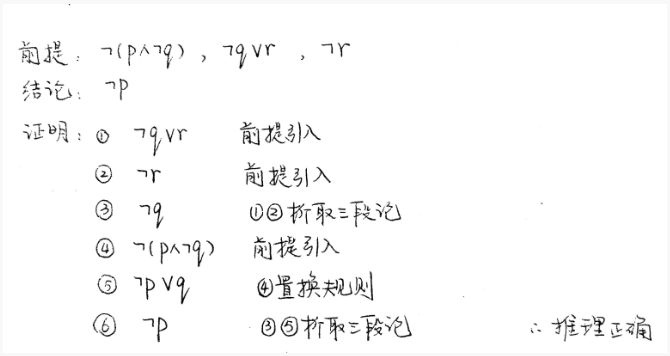 前提: ¬(p∧¬q) , ¬q∨r , ¬r
结论: ¬p
证明: ① ¬q∨r 前提引入
② ¬r 前提引入
③ ¬q ①②析取三段论
④ ¬(p∧¬q) 前提引入
⑤ ¬p∨q ④置换规则
⑥ ¬p ③⑤析取三段论 ∴推理正确